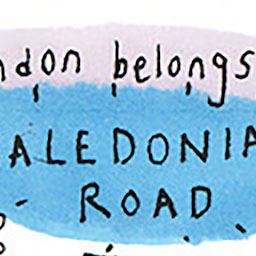 ndon belongs
ALEDONIA
ROAD